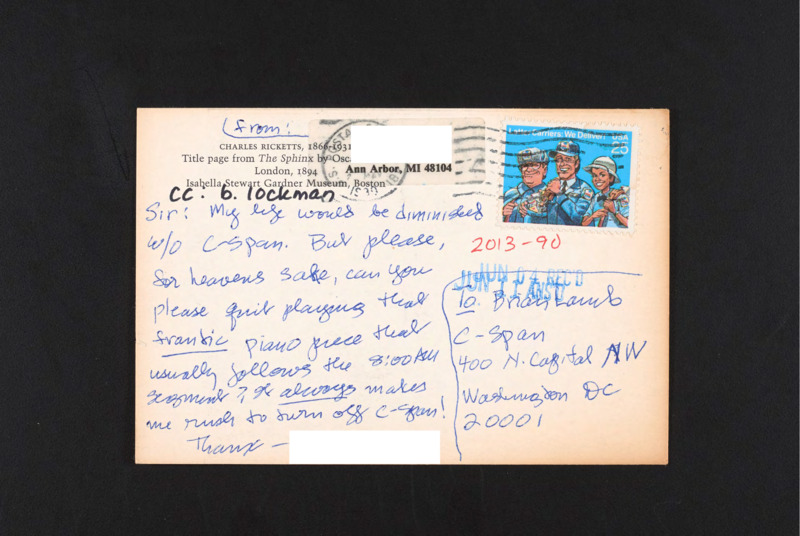 (from:
CHARLES RICKETTS, 1866-1931
Title page from The Sphinx by Osc
London, 1894
Isabella Stewart Gardner Museum, Boston
Ann Arbor, MI 48104
Letter Carriers: We Deliver!
USA
25
cc. b. lockman
Sir: My life would be diminished
w/o C-Span. But please,
for heavens sake, can you
please quit playing that
frantic piano piece that
usually follows the 8:00 AM
segment? It always makes
me rush to turn off C-Span!
Thanx —
2013-90
JUN 04 REC'D
JUN 11 ANS'D
To Brian Lamb
C-Span
400 N. Capital NW
Washington DC
20001